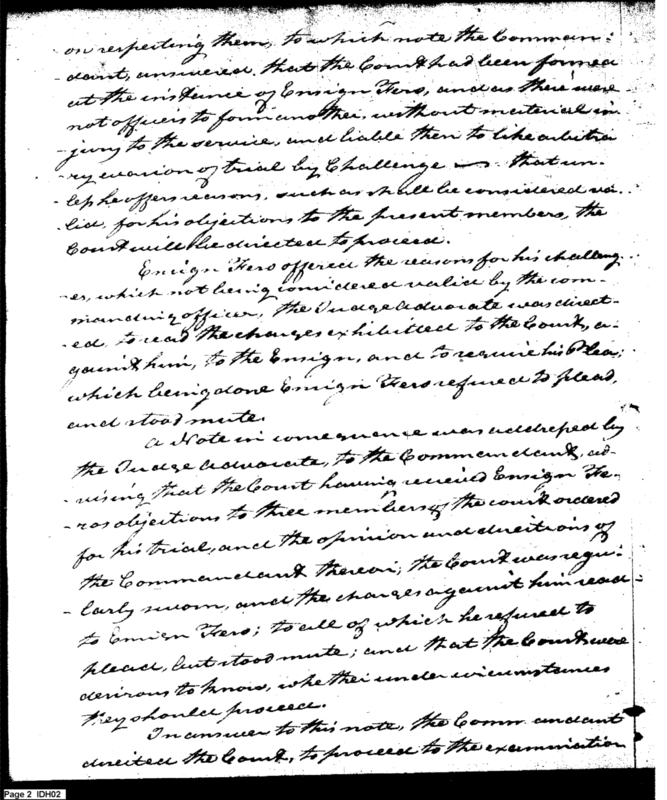 on respecting them, to which note the Comman-
-dant, answered, that the Court had been formed
at the instance of Ensign Fero, and as there were
not officers to form another, without material in-
jury to the service, and liable then to like arbitra
ry evasion of trial by Challenge — that un-
-less he offers reasons, such as shall be considered va-
-lid, for his objections to the present members, the
Court will be directed to proceed.
Ensign Fero offered the reasons for his challeng-
-es, which not being considered valid by the com-
manding officer, the Judge Advocate was direct-
-ed, to read the charges exhibitted to the Court, a-
gainst him, to the Ensign, and to require his Plea;
which being done Ensign Fero refused to plead,
and stood mute.
A Note in consequence was addressed by
the Judge Advocate, to the Commandant, ad-
-vising that the Court having received Ensign Fe-
-ros objections to three members of the court ordered
for his trial, and the opinion and directions of
the Commandant thereon; the Court was regu-
-larly sworn, and the charges against him read
to Ensign Fero; to all of which he refused to
plead, but stood mute; and that the Court were
desirous to know, whether under circumstances
they should proceed.
In answer to this note, the Commandant
directed the Court, to proceed to the examination
Page 2 IDH02